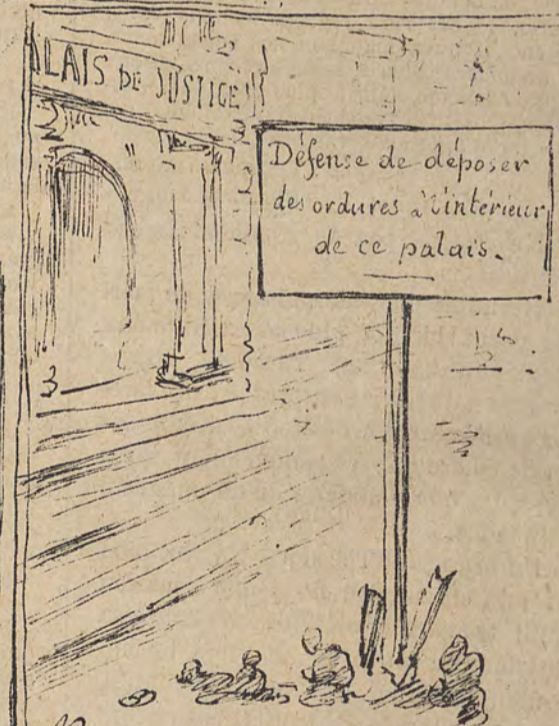 LAIS DE JUSTICE
Défense de déposer
des ordures à l'intérieur
de ce palais.